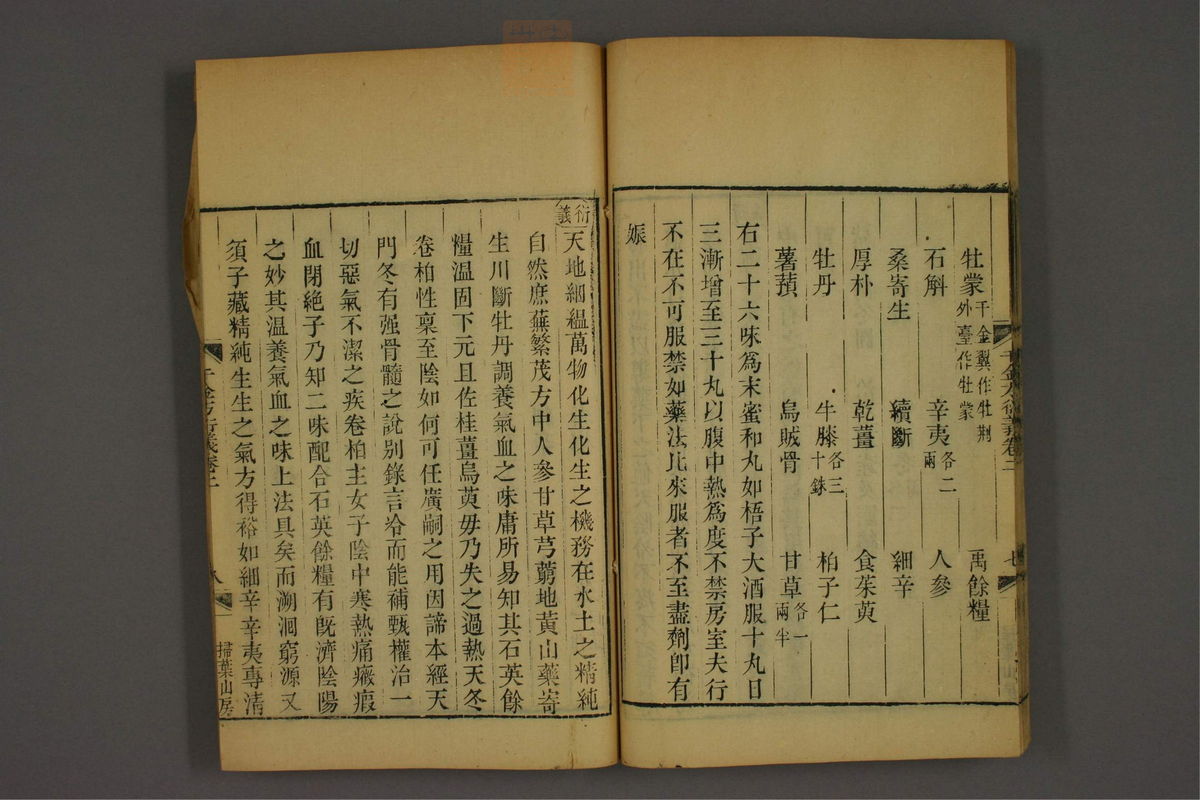 牡蒙千金翼作牡荆外臺作牡蒙 禹餘糧
石斛 辛夷各二兩 人參
桑寄生 續斷 細辛
厚朴 乾薑 食茱萸
牡丹 牛膝各三十銖 柏子仁
薯蕷 烏賊骨 甘草各一兩半
右二十六味爲末蜜和丸如梧子大酒服十丸日
三漸增至三十丸以腹中熱爲度不禁房室夫行
不在不可服禁如藥法比來服者不至盡劑卽有
娠
千金方衍義卷二 七
衍義
天地絪縕萬物化生化生之機務在水土之精純
自然庶蕪繁茂方中人參甘草芎藭地黃山藥寄
生川斷牡丹調養氣血之味庸所易知其石英餘
糧温固下元且佐桂薑烏萸毋乃失之過熱天冬
卷柏性稟至陰如何可任廣嗣之用因諦本經天
門冬有强骨髓之說別錄言冷而能補甄權治一
切惡氣不潔之疾卷柏主女子陰中寒熱痛癥瘕
血閉絕子乃知二味配合石英餘糧有旣濟陰陽
之妙其温養氣血之味上法具矣而溯洄窮源又
須子藏精純生生之氣方得裕如細辛辛夷專清
千金方衍義卷二 八 掃葉山房